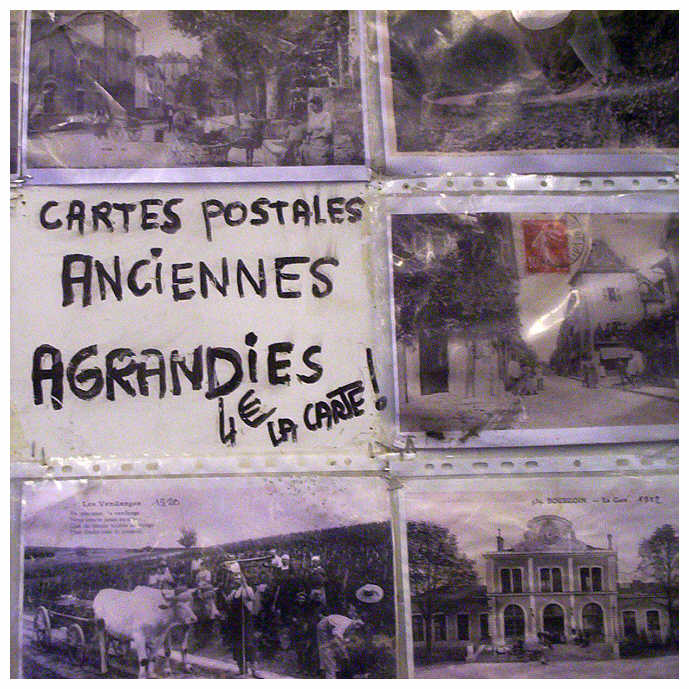 CARTES POSTALES
ANCIENNES
AGRANDIES
4€
LA CARTE!
Les Vendanges 1920
BOURGOIN - La Gare 1912